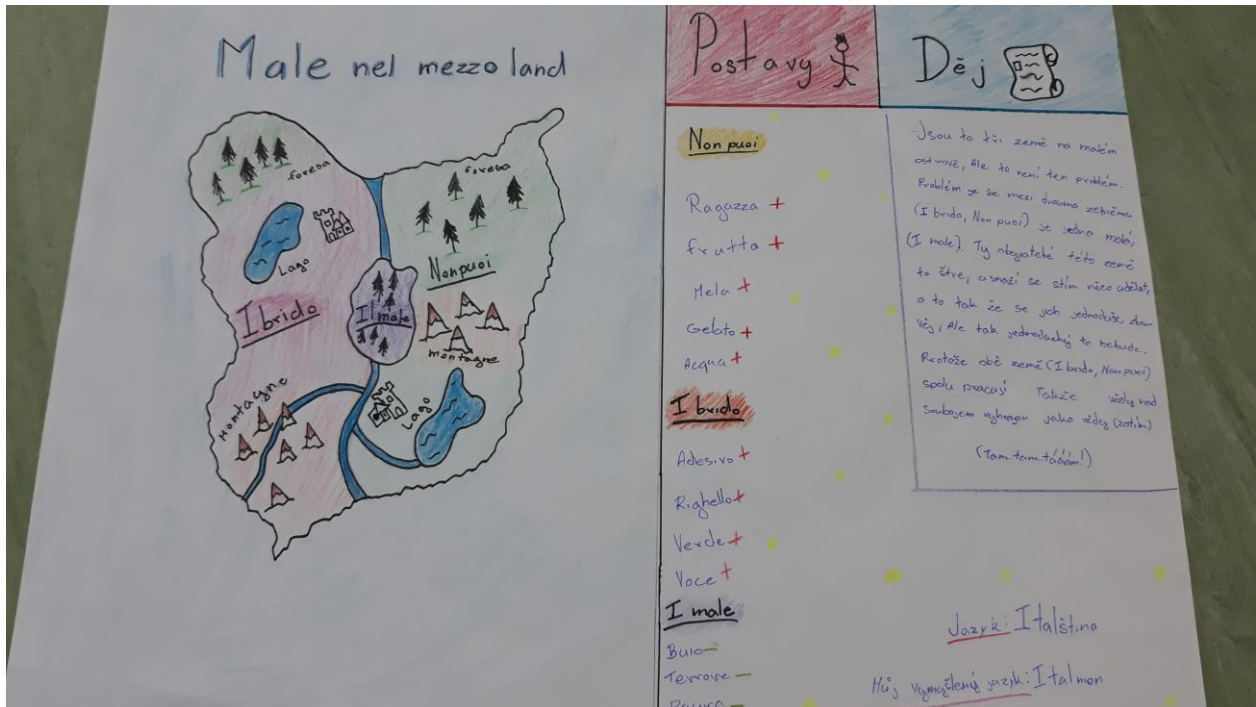 Male nel mezzo land
foresa
Lago
Ibrido
Montagne
foresa
Nonpuoi
Il male
montagne
Lago
Postavy
Non puoi
Ragazza +
frutta +
Mela +
Gelato +
Acqua +
I brido
Adesivo +
Righello +
Verde +
Voce +
I male
Buio -
Terrore -
Paura -
Děj
-Jsou to tři země na malém
ostrově, Ale to není ten problém.
Problém je že mezi dvouma zeměmu
(I brido, Non puoi) je jedna malá,
(I male). Ty obyvatelé této země
to štve, a snaží se stím něco udělat,
a to tak že se jich jednoduše zba-
věj, Ale tak jednoduchý to nebude.
Protože obě země (I brido, Non puoi)
spolu pracují Takže vždy nad
soubojem vyhrajou jako vždy (zatím)
(Tam..tam..tááám!)
Jazyk: Italština
Můj vymyšlený jazyk: Italmon